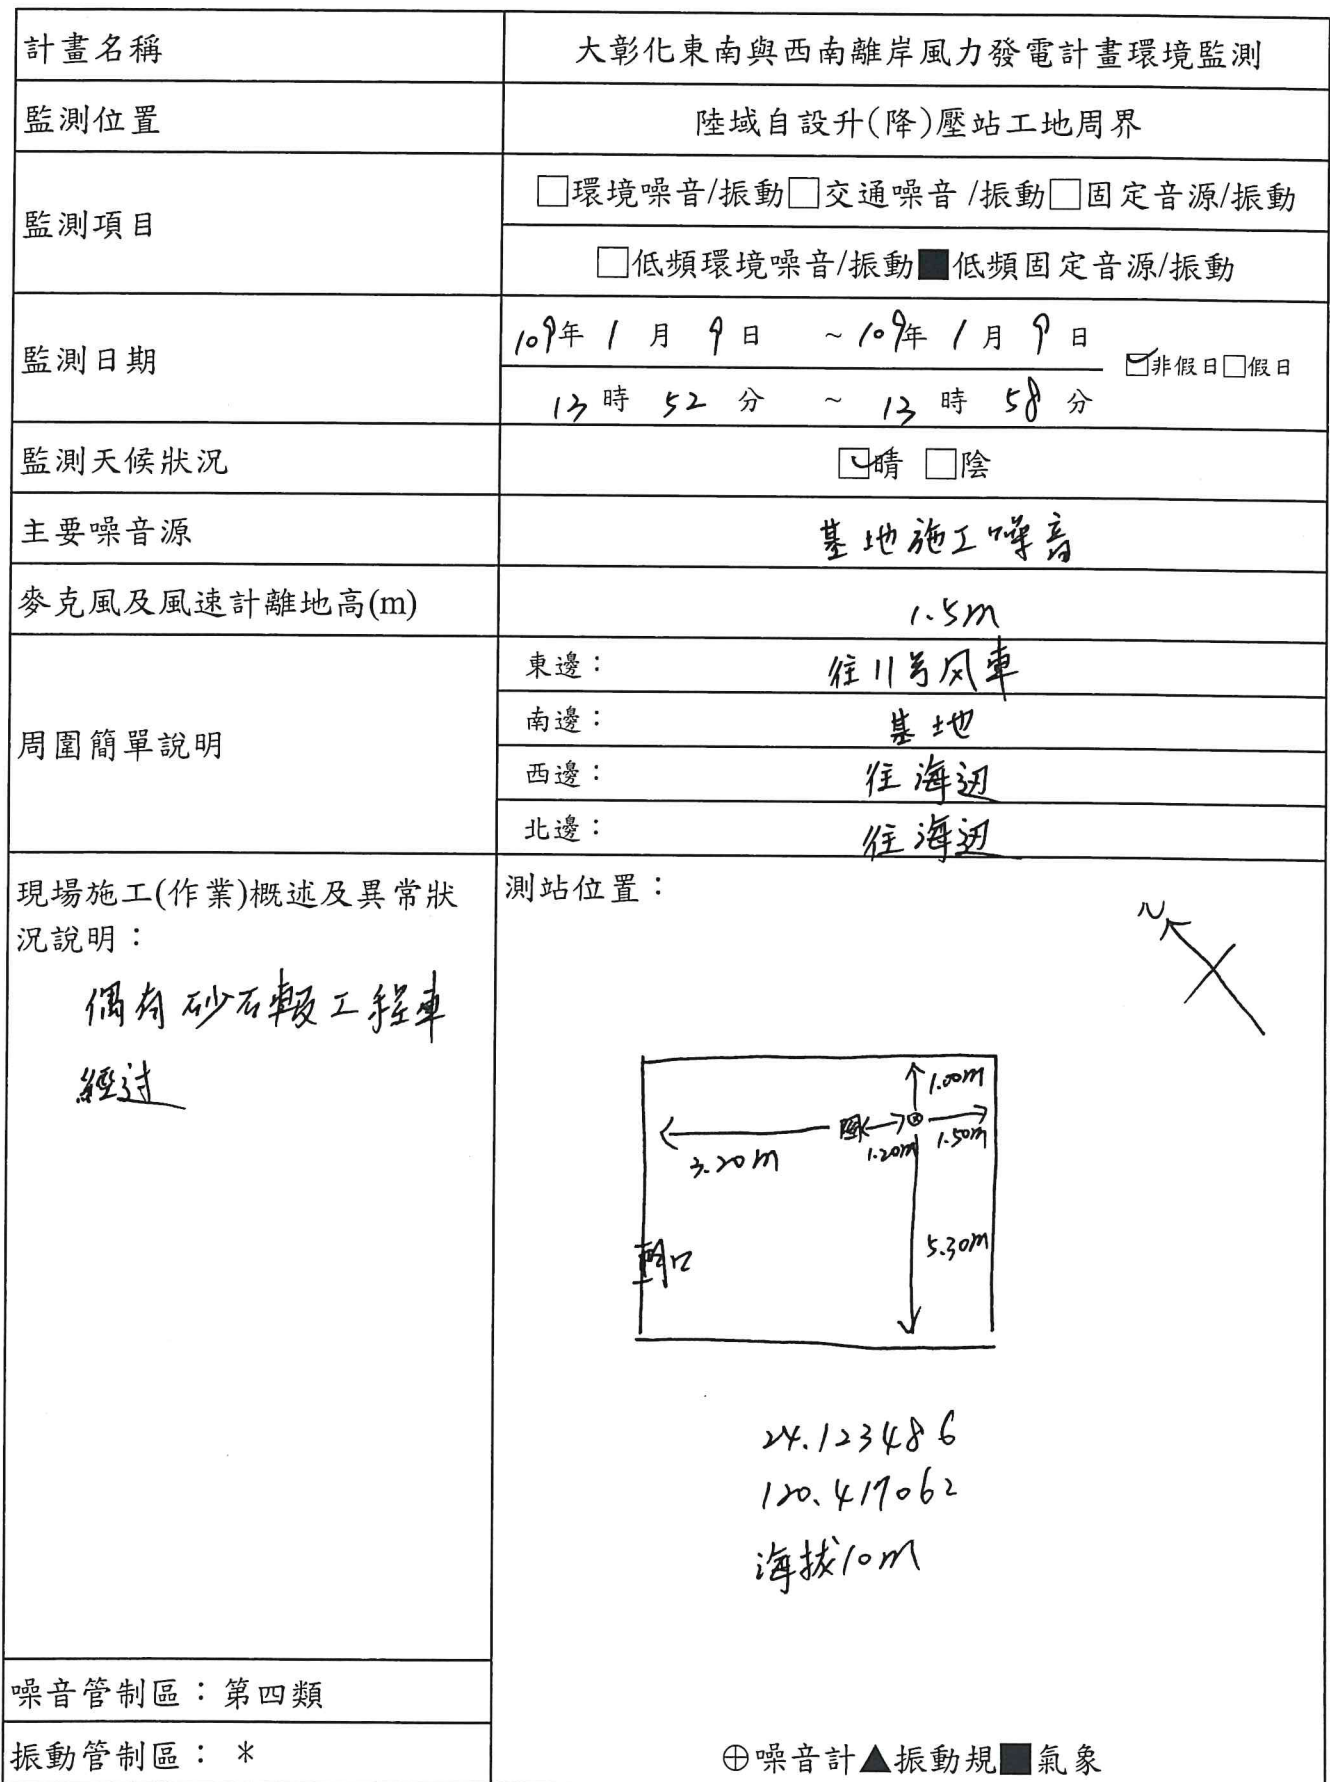 計畫名稱 大彰化東南與西南離岸風力發電計畫環境監測
監測位置 陸域自設升(降)壓站工地周界
監測項目 □環境噪音/振動□交通噪音 /振動□固定音源/振動
□低頻環境噪音/振動■低頻固定音源/振動
監測日期 109年 1 月 9 日 ~ 109年 1 月 9 日 ☑非假日□假日
13 時 52 分 ~ 13 時 58 分
監測天候狀況 ☑晴 □陰
主要噪音源 基地施工噪音
麥克風及風速計離地高(m) 1.5m
周圍簡單說明
東邊: 往11号风車
南邊: 基地
西邊: 往海边
北邊: 往海边
現場施工(作業)概述及異常狀
況說明:
偶有砂石車及工程車
經过
測站位置:
N
1.00m
1.20m 1.50m
3.20m
5.30m
24.123486
120.417062
海拔10m
噪音管制區:第四類
振動管制區: *
⊕噪音計▲振動規■氣象